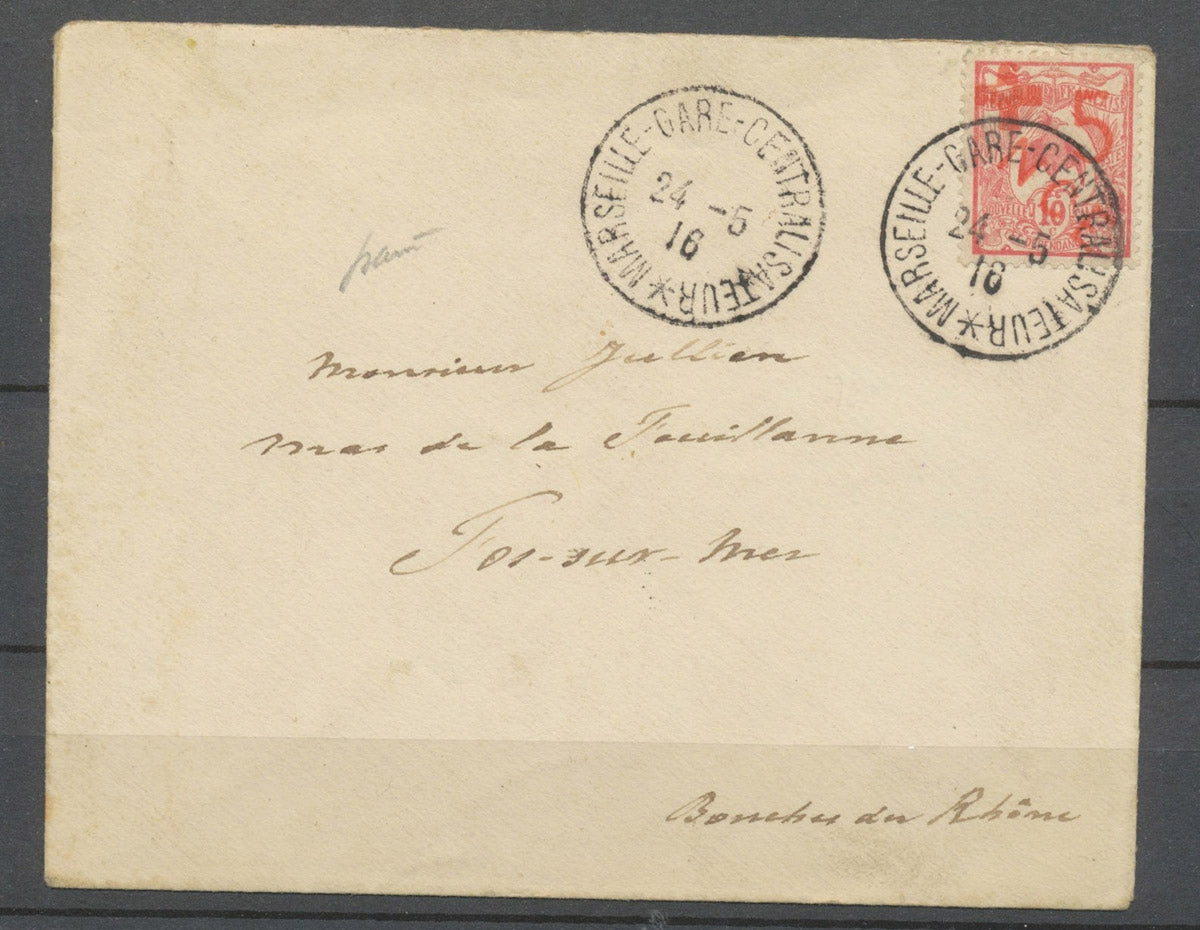 MARSEILLE-GARE-CENTRALISATEUR *
24 -5
16
MARSEILLE-GARE-CENTRALISATEUR *
24 -5
16
FRANÇAISE
5
10
Monsieur Jullien
mas de la Feuillanne
Fos-sur-Mer
Bouches du Rhône